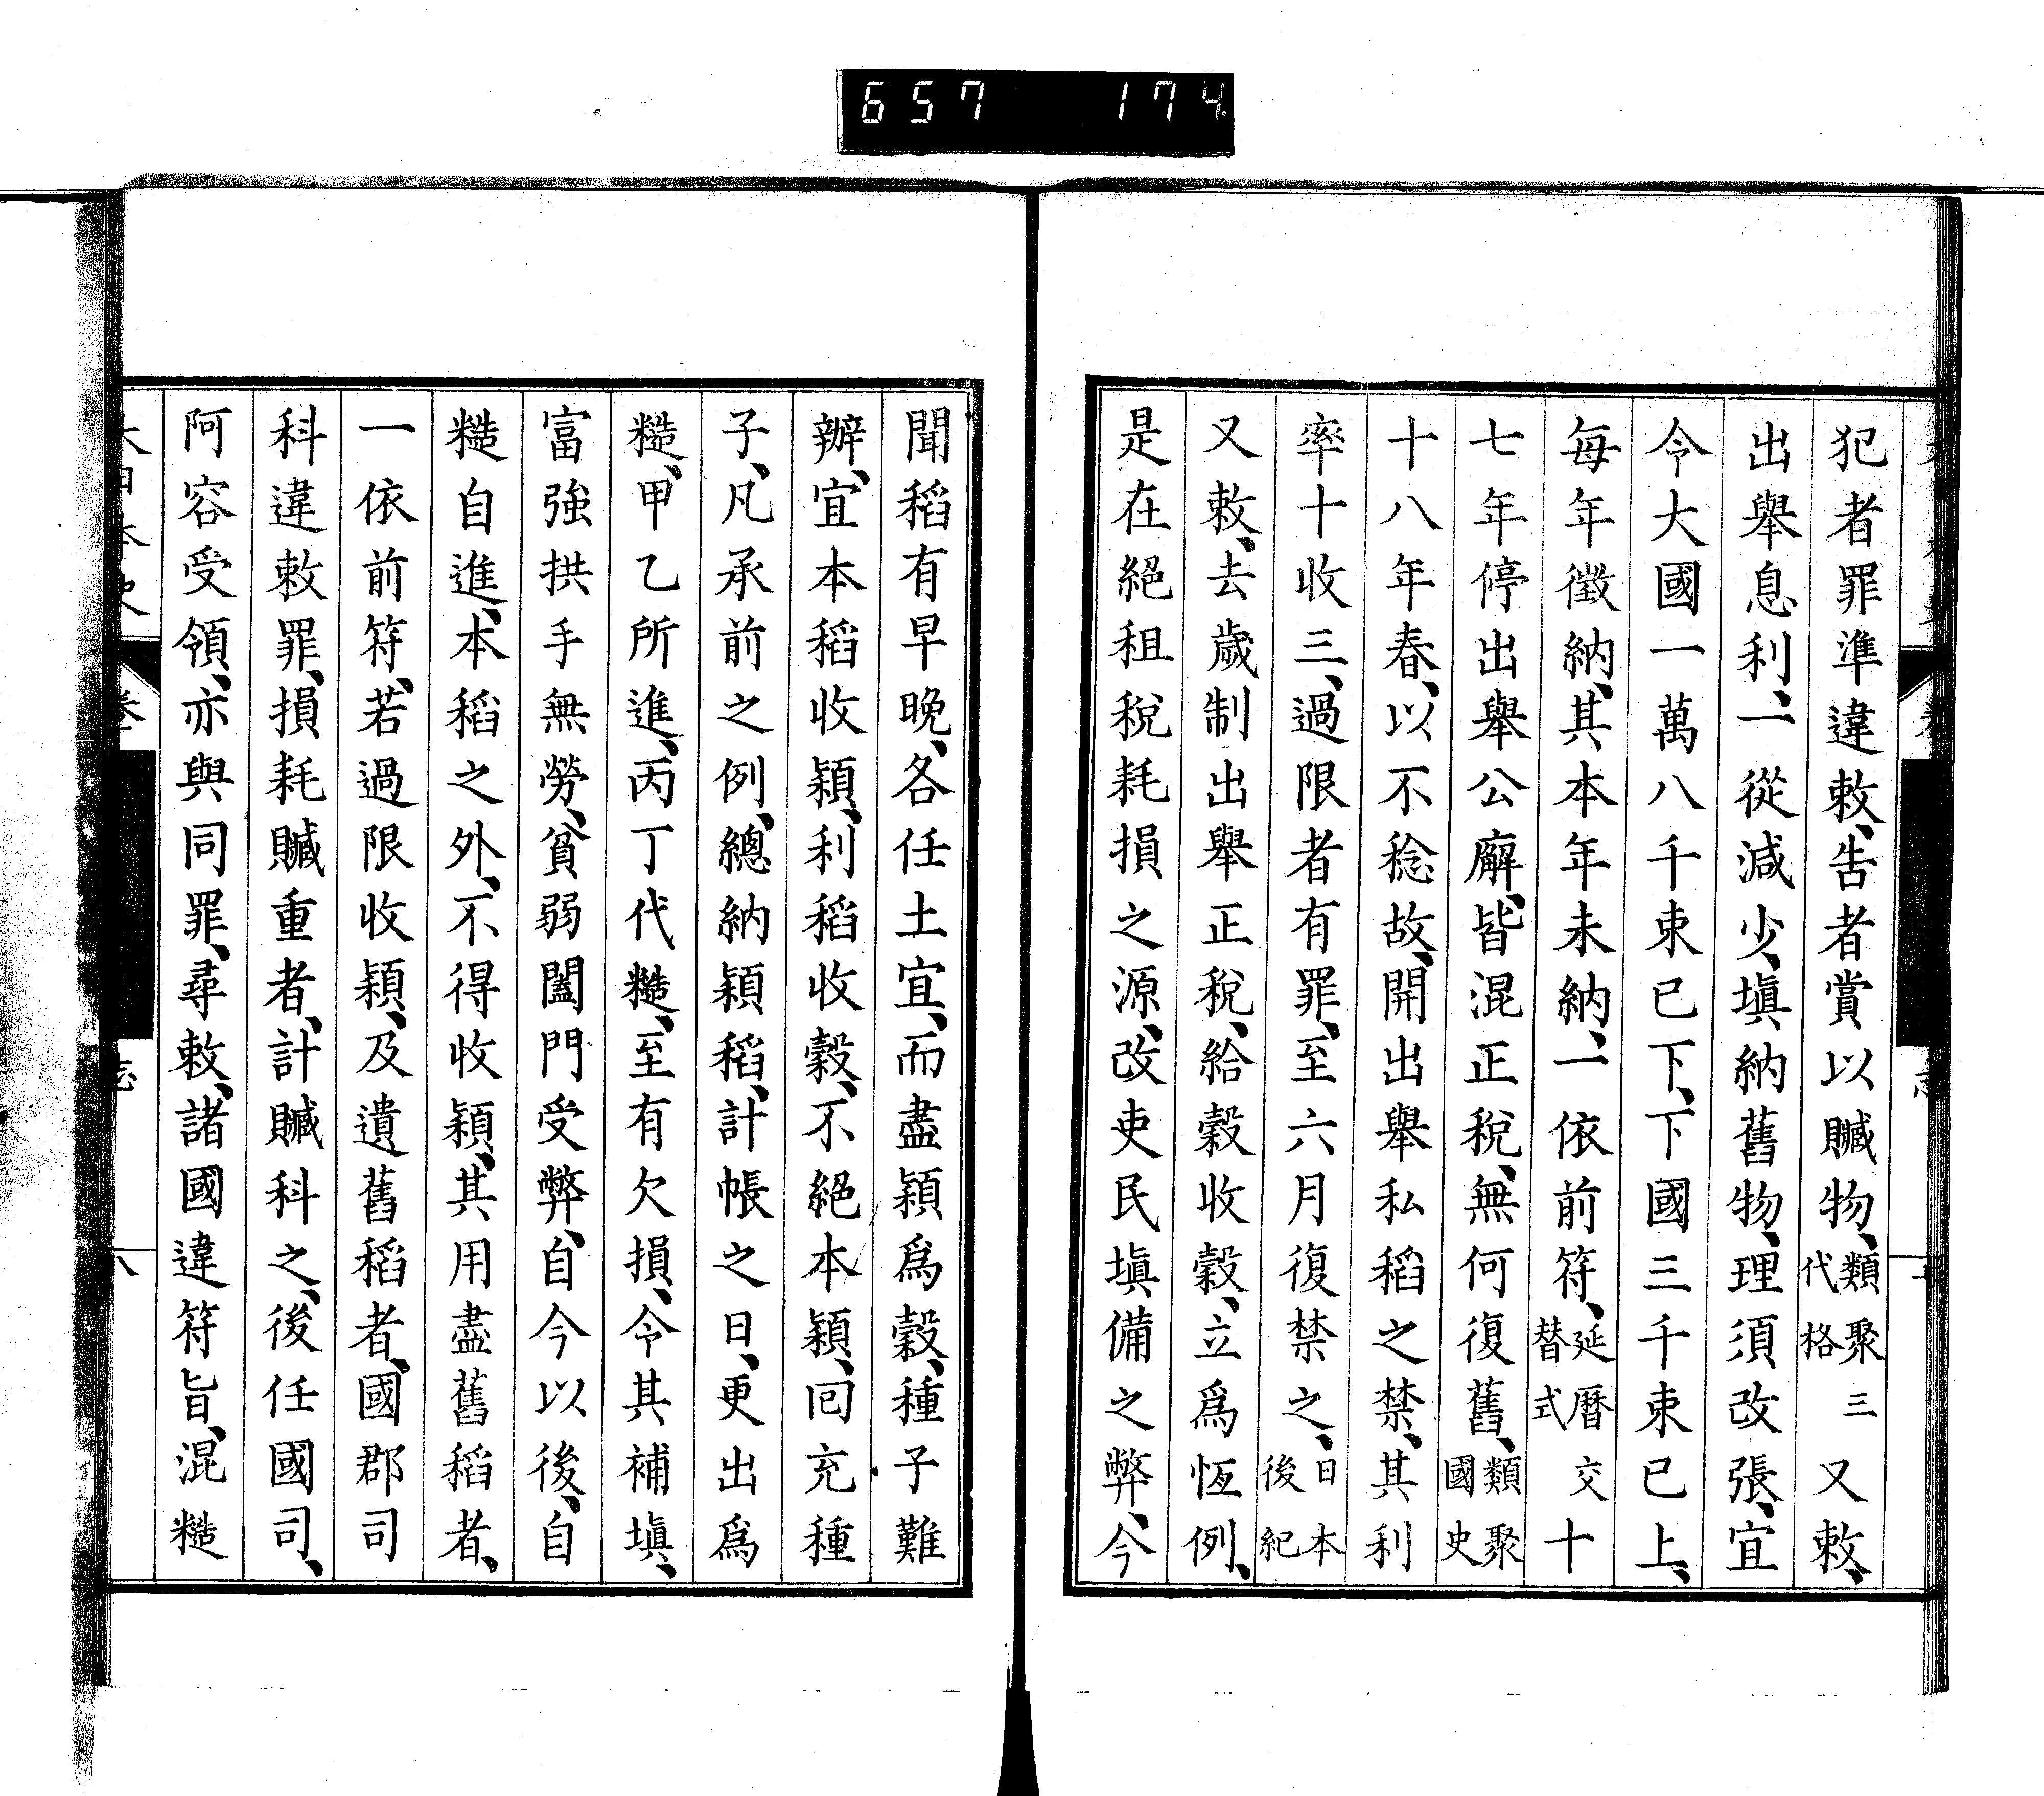 657 174
犯者罪準違敕、吿者賞以贓物、類聚三代格又敕、
出舉息利、一從減少、塡納舊物、理須改張、宜
令大國一萬八千束已下、下國三千束已上、
每年徵納、其本年未納、一依前符、延曆交替式十
七年停出舉公廨、皆混正稅、無何復舊、類聚國史
十八年春、以不稔故、開出舉私稻之禁、其利
率十收三、過限者有罪、至六月復禁之、日本後紀
又敕、去歲制出舉正稅、給穀收穀、立爲恆例、
是在絕租稅耗損之源、改吏民塡備之弊、今
聞稻有早晚、各任土宜、而盡穎爲穀、種子難
辦、宜本稻收穎、利稻收穀、不絕本穎、囘充種
子、凡承前之例、總納穎稻、計帳之日、更出爲
糙、甲乙所進、丙丁代糙、至有欠損、令其補塡、
富強拱手無勞、貧弱闔門受弊、自今以後、自
糙自進、本稻之外、不得收穎、其用盡舊稻者、
一依前符、若過限收穎、及遺舊稻者、國郡司
科違敕罪、損耗贓重者、計贓科之、後任國司、
阿容受領、亦與同罪、尋敕、諸國違符旨、混糙
大日本史 卷 志 八